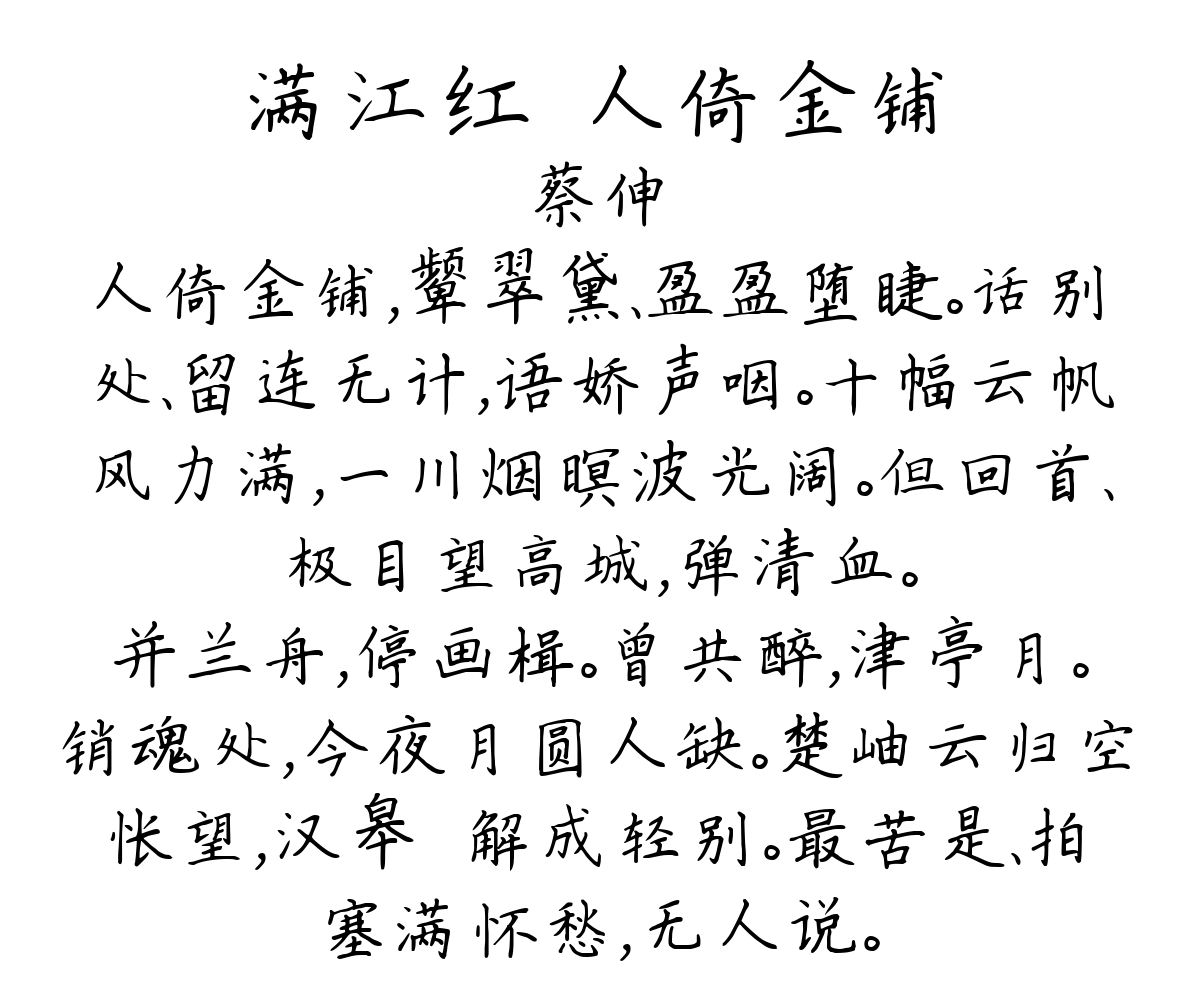 满江红 人倚金铺
蔡伸
人倚金铺,颦翠黛、盈盈堕睫。话别
处、留连无计,语娇声咽。十幅云帆
风力满,一川烟暝波光阔。但回首、
极目望高城,弹清血。
并兰舟,停画楫。曾共醉,津亭月。
销魂处,今夜月圆人缺。楚岫云归空
怅望,汉皋 解成轻别。最苦是、拍
塞满怀愁,无人说。